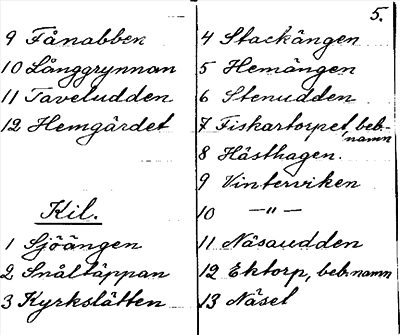 5.
9 Fånabben
10 Långgrynnan
11 Taveludden
12 Hemgärdet
Kil.
1 Sjöängen
2 Snåltäppan
3 Kyrkslätten
4 Stackängen
5 Hemängen
6 Stenudden
7 Fiskartorpet, beb.-
namn
8 Hästhagen.
9 Vinterviken
10 —"—
11 Näsaudden
12 Ektorp, beb.namn
13 Näset